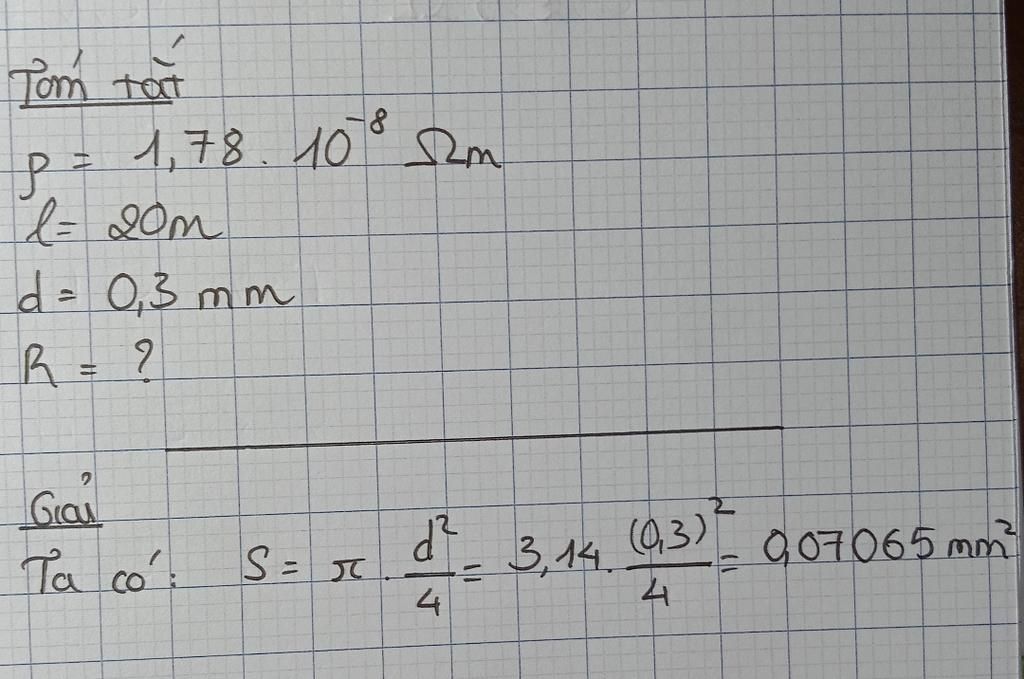 Tóm tắt
ρ = 1,78 . 10⁻⁸ Ωm
l = 20m
d = 0,3 mm
R = ?
Giải
Ta có: S = π . d²/4 = 3,14 . (0,3)²/4 = 0,07065 mm²